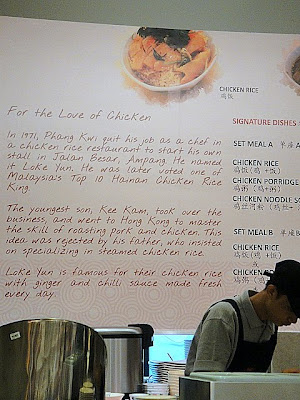 CHICKEN RICE
鸡饭
For the Love of Chicken
In 1971, Phang Kwi quit his job as a chef in
a chicken rice restaurant to start his own
stall in Jalan Besar, Ampang. He named
it Loke Yun. He was later voted one of
Malaysia's Top 10 Hainan Chicken Rice
King.
The youngest son, Kee Kam, took over the
business, and went to Hong Kong to master
the skill of roasting pork and chicken. This
idea was rejected by his father, who insisted
on specializing in steamed chicken rice.
Loke Yun is famous for their chicken rice
with ginger and chilli sauce made fresh
every day.
SIGNATURE DISHES
SET MEAL A
CHICKEN RICE
鸡饭(鸡+饭)
CHICKEN PORRIDGE
鸡粥(鸡+粥)
CHICKEN NOODLE
SET MEAL B
CHICKEN RICE
鸡饭(鸡+饭)
或
CHICKEN
鸡粥